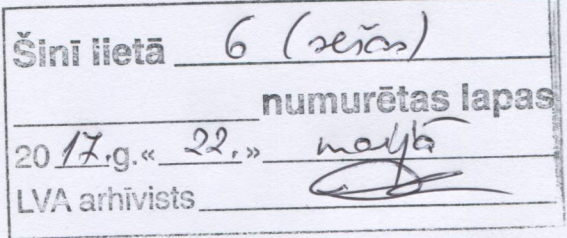 Šinī lietā 6 (sešas)
numurētas lapas
2017.g.« 22.» maijā
LVA arhīvists